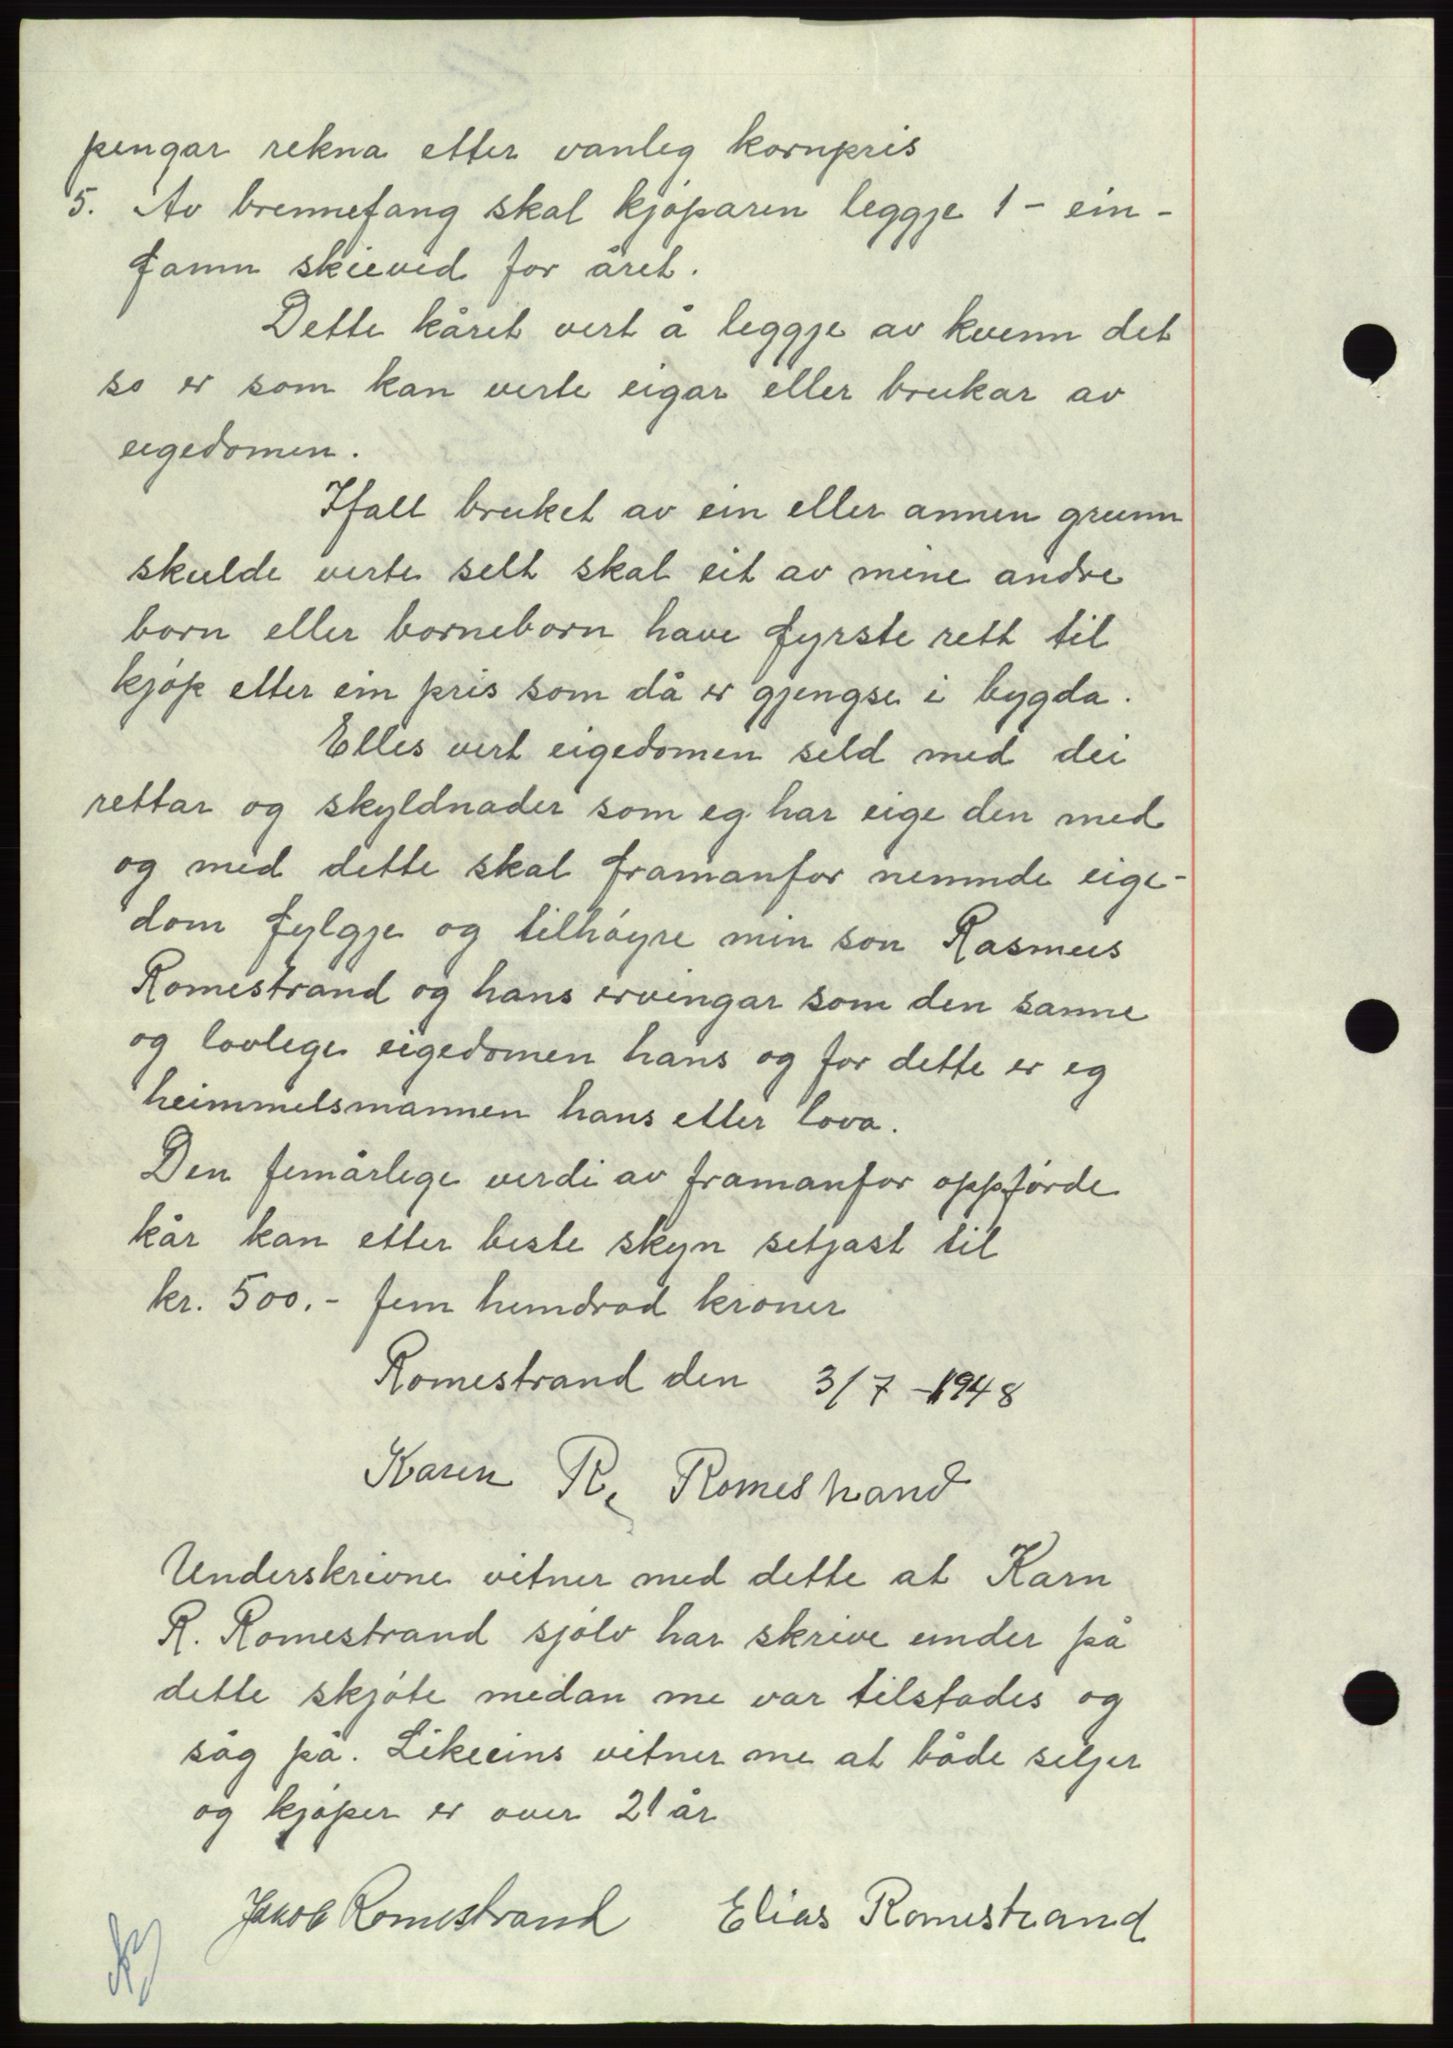 pengar rekna etter vanleg kornpris
5. Av brennefang skal kjøparen leggje 1 - ein -
famn skieved for året.
Dette kåret vert å leggje av kvenn det
so er som kan verte eigar eller brukar av
eigedomen.
Ifall bruket av ein eller annen grunn
skulde verte selt skal eit av mine andre
born eller borneborn have fyrste rett til
kjøp etter ein pris som då er gjengse i bygda.
Elles vert eigedomen seld med dei
rettar og skyldnader som eg har eige den med
og med dette skal framanfor nemnde eige-
dom fylgje og tilhøyre min son Rasmus
Romestrand og hans ervingar som den sanne
og lovlege eigedomen hans og for dette er eg
heimmelsmannen hans etter lova.
Den femårlege verdi av framanfor oppførde
kår kan etter beste skyn setjast til
kr. 500.- fem hundrad kroner
Romestrand den 3/7 -1948
Karen R. Romestrand
Underskrivne vitner med dette at Karn
R. Romestrand sjølv har skrive under på
dette skjøte medan me var tilstades og
såg på. Likeeins vitner me at både seljer
og kjøper er over 21 år
Jakob Romestrand Elias Romestrand